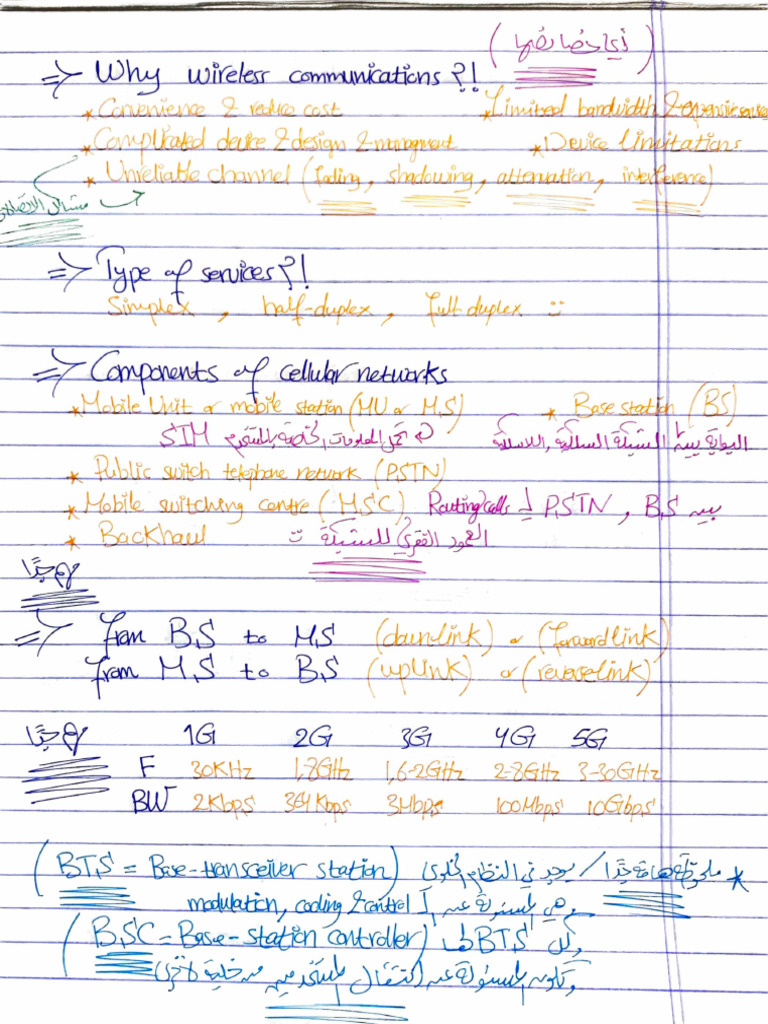 (أي خصائصها)
=> Why wireless communications ?!
* Convenience & reduce cost * Limited bandwidth & expensive
* Complicated device & design & managment * Device Limitations
* Unreliable channel (fading, shadowing, attenuation, interference)
مشاكل الاتصالات
=> Type of services ?!
Simplex , half-duplex , full-duplex
=> Components of cellular networks
* Mobile Unit or mobile station (MU or M.S) * Base station (BS)
SIM تحمل المعلومات الخاصة بالمستخدم البوابة بين الشبكة السلكية واللاسلكية
* Public switch telephone network (PSTN)
* Mobile switching centre (M.S.C) Routing calls لـ PSTN , B.S بين
* Backhaul العمود الفقري للشبكة
مهم جدًا
=> From B.S to M.S (down-link) or (forward link)
From M.S to B.S (uplink) or (reverse link)
مهم جدًا 1G 2G 3G 4G 5G
F 30KHz 1,8GHz 1,6-2GHz 2-8GHz 3-30GHz
BW 2Kbps 364Kbps 3Mbps 100Mbps 10Gbps
* ملحوظة هامة جدًا / يوجد في النظام الخلوي (BTS = Base-transceiver station)
وهي المسئولة عن modulation, coding & control
وكل BTS لها (BSC = Base-station controller)
وتكون المسئولة عن انتقال المستخدمين من خلية لأخرى